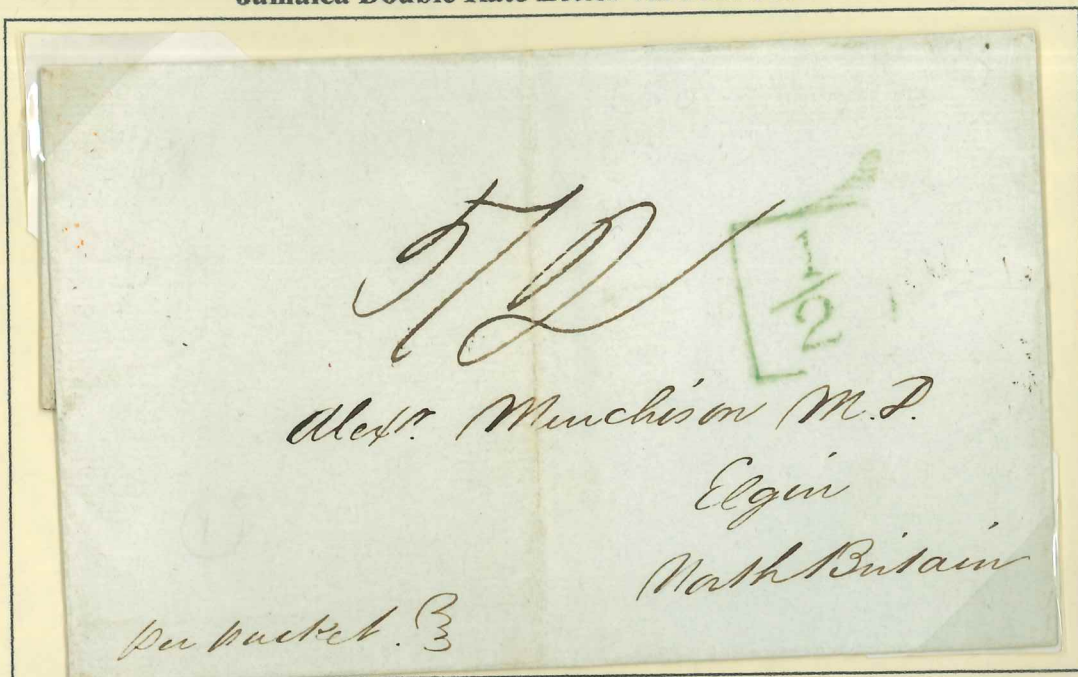 5/2
1/2
Alexr. Murchison M.D.
Elgin
North Britain
per packet.